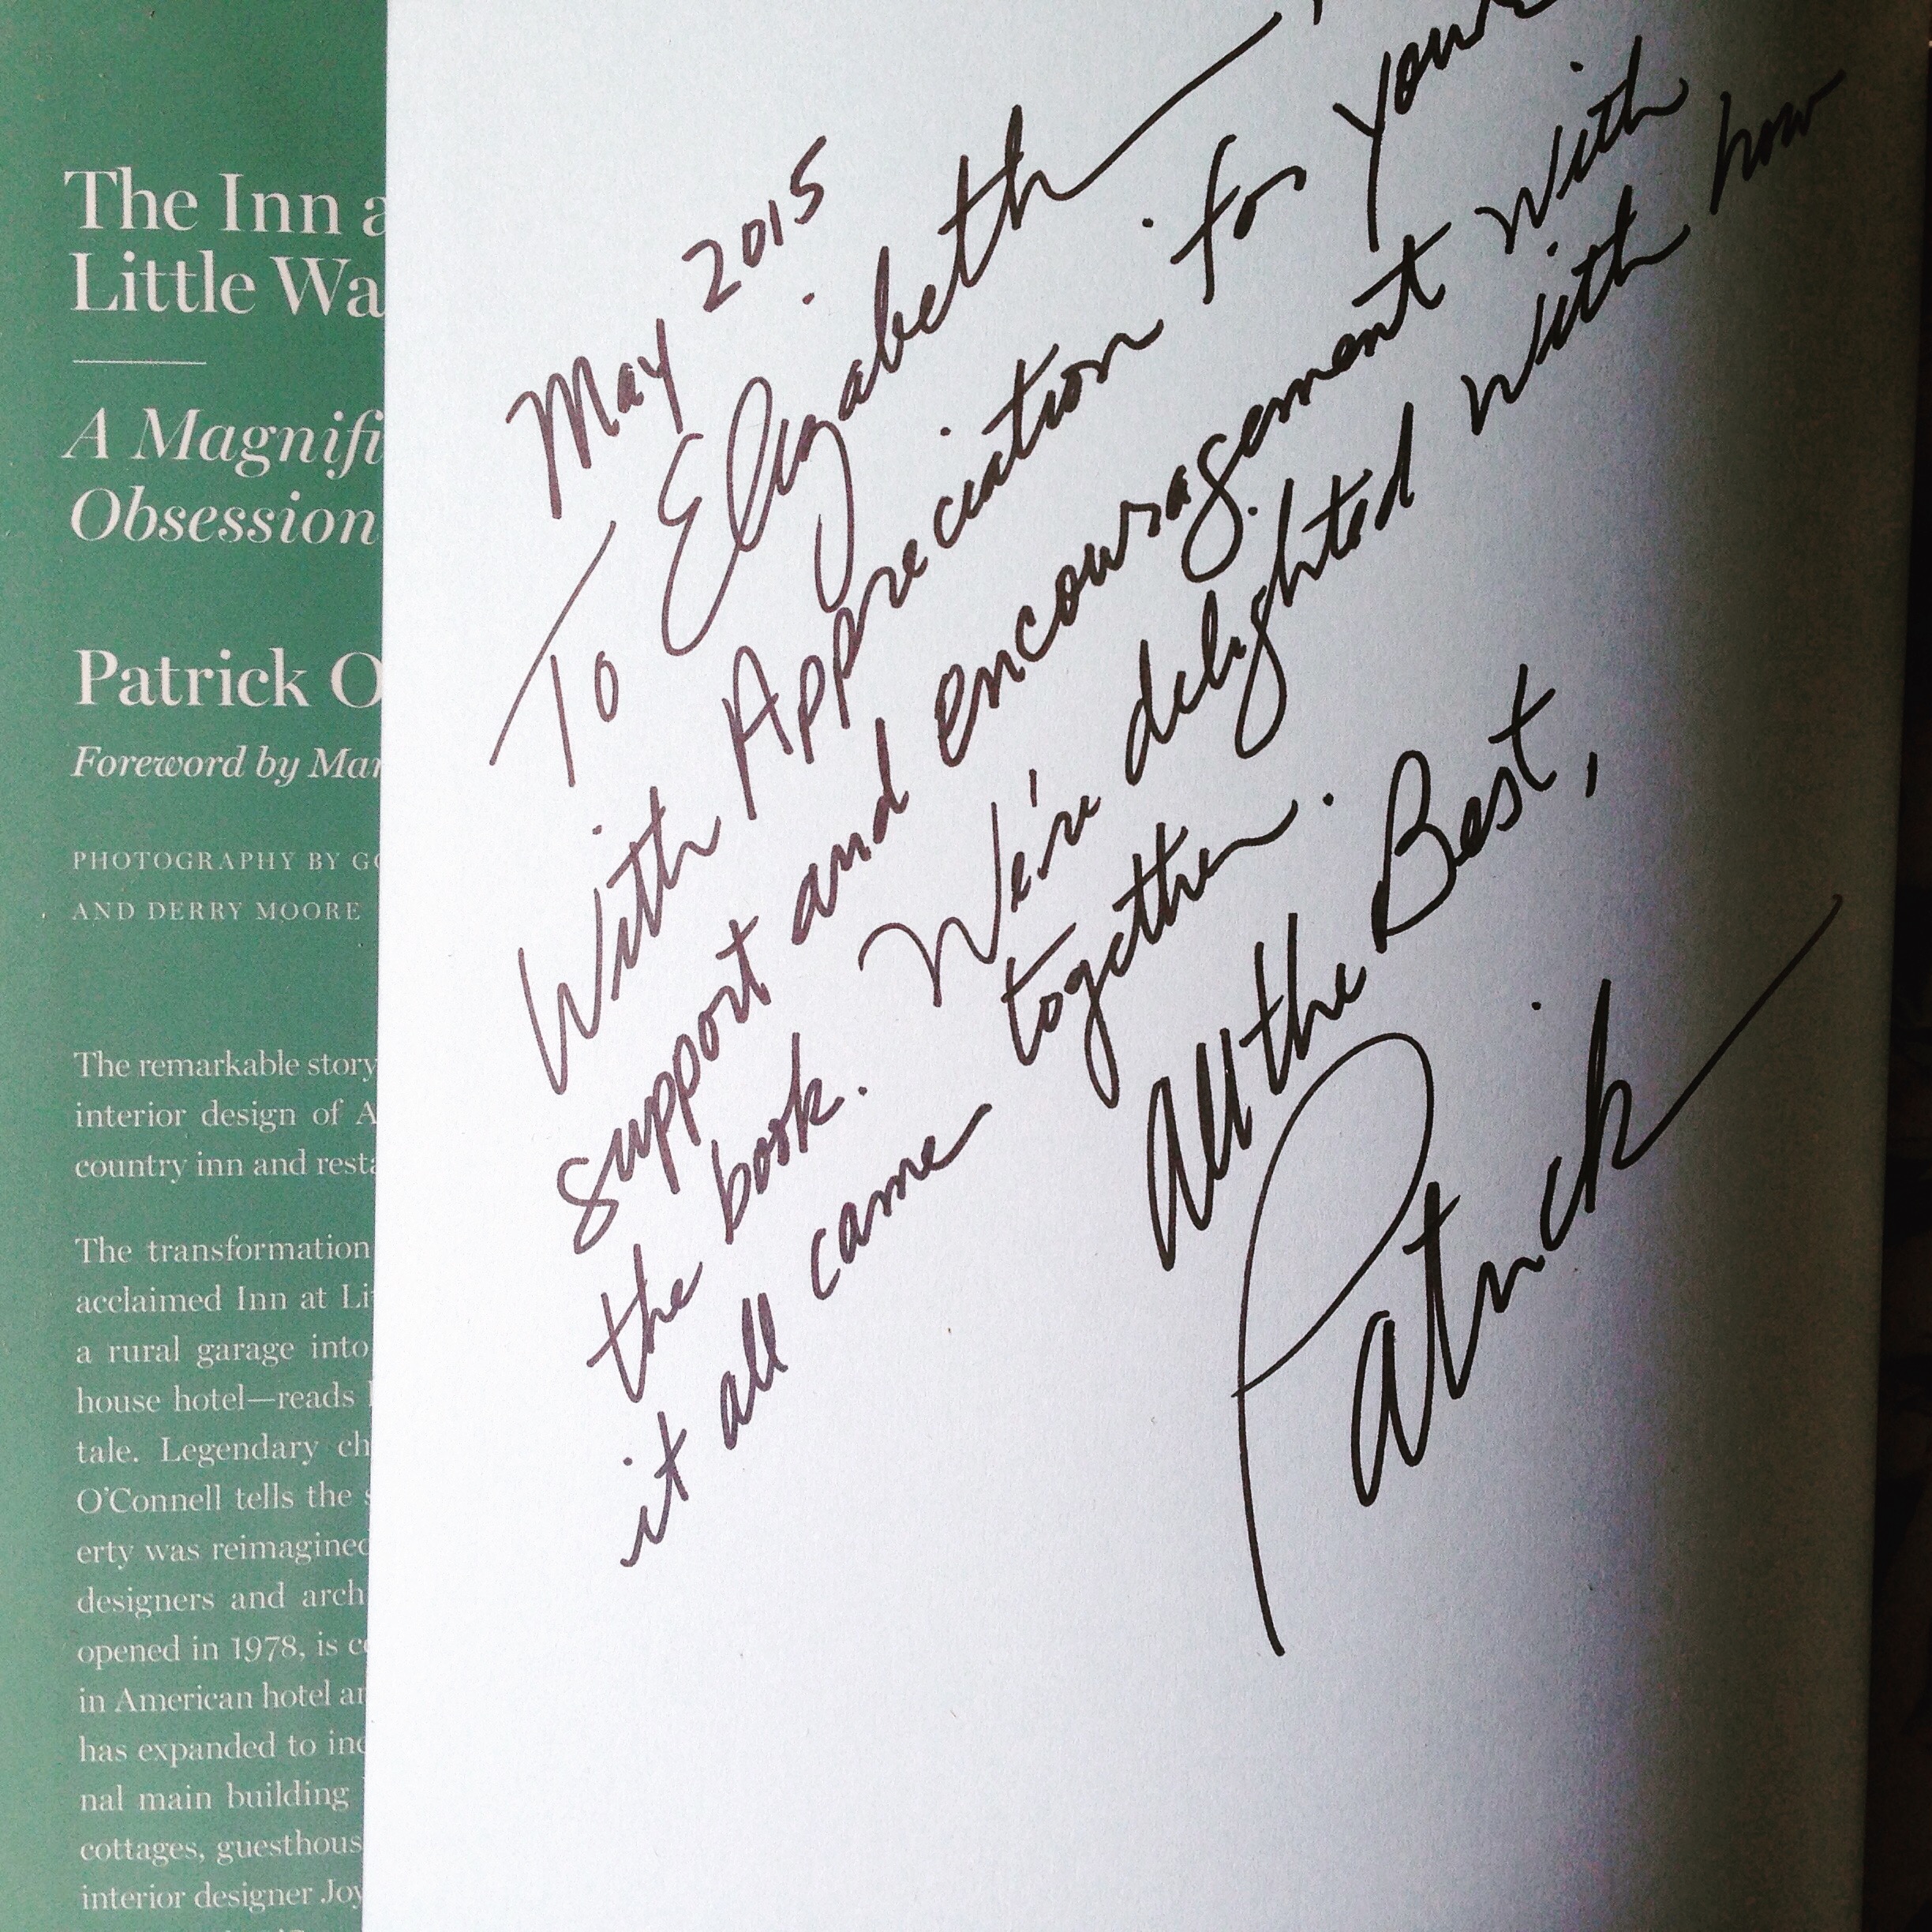 The Inn a
Little Wa
A Magnifi
Obsession
Patrick O
Foreword by Mar
PHOTOGRAPHY BY GO
AND DERRY MOORE
The remarkable story
interior design of A
country inn and resta
The transformation
acclaimed Inn at Lit
a rural garage into
house hotel—reads
tale. Legendary ch
O'Connell tells the s
erty was reimagined
designers and arch
opened in 1978, is co
in American hotel an
has expanded to inc
nal main building
cottages, guesthous
interior designer Joy
May 2015
To Elizabeth
With Appreciation for your
support and encouragement with
the book. We're delighted with how
it all came together.
All the Best,
Patrick